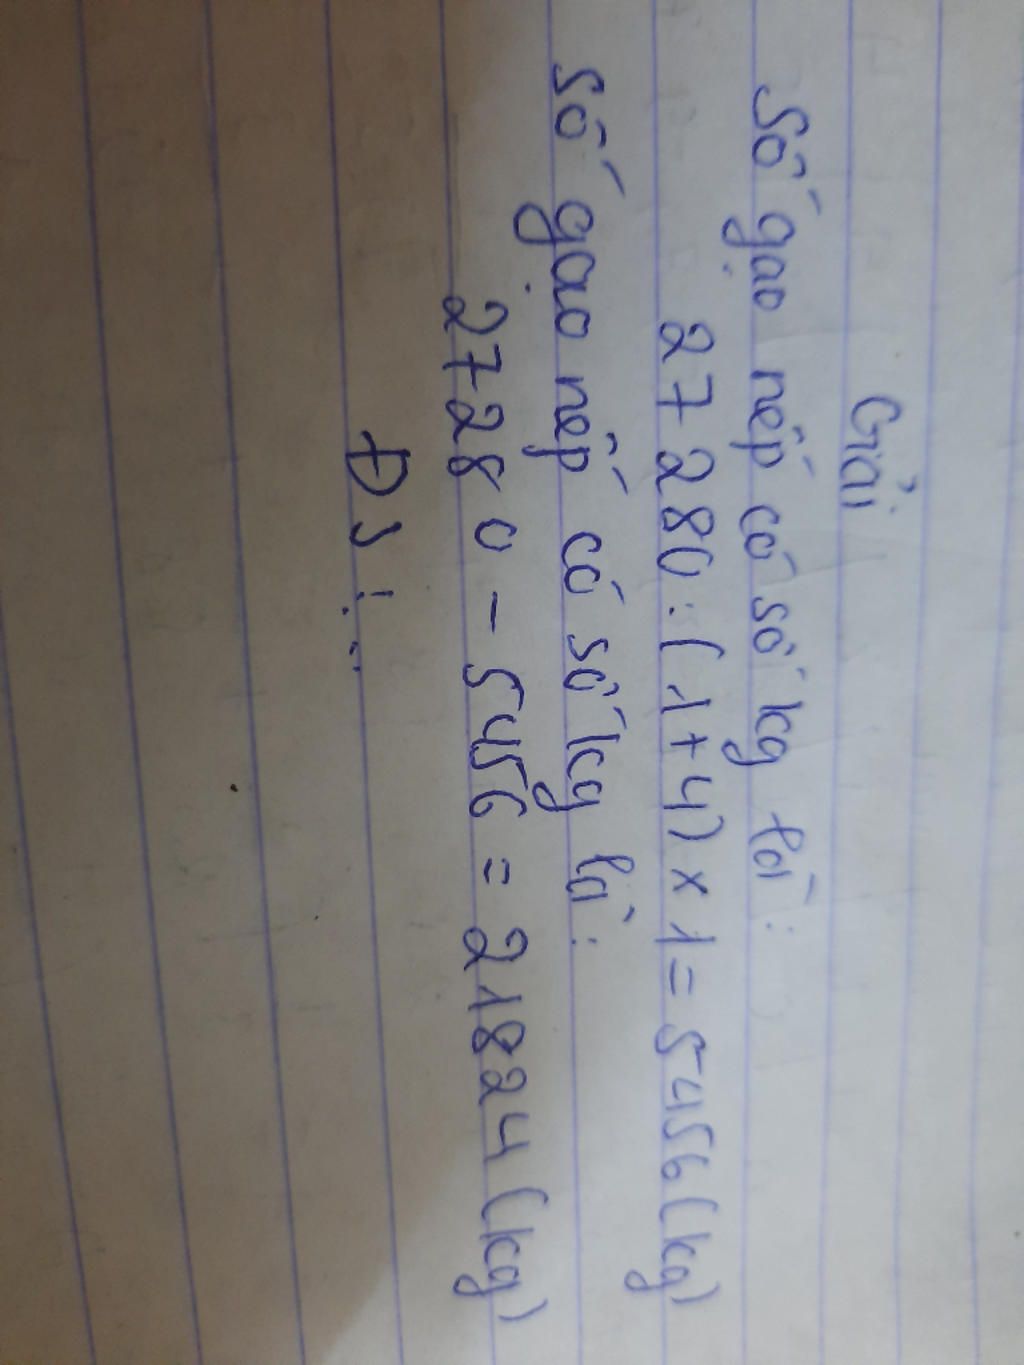 Giải
Số gạo nếp có số kg là:
27 280 : (1+4) x 1 = 5456 (kg)
Số gạo nếp có số kg là:
2728 0 - 5456 = 21824 (kg)
ĐS : ..